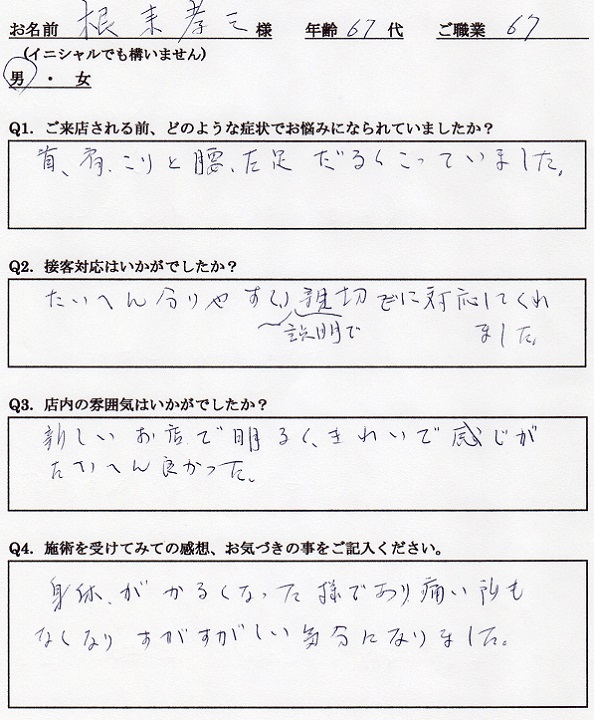 お名前 根末孝三様 年齢 67 代 ご職業 67
(イニシャルでも構いません)
男 ・ 女
Q1. ご来店される前、どのような症状でお悩みになられていましたか?
首、肩、こりと腰、左足 だるくこっていました。
Q2. 接客対応はいかがでしたか?
たいへん分りやすい 親切 に対応してくれ
説明で ました。
Q3. 店内の雰囲気はいかがでしたか?
新しいお店で明るく、きれいで感じが
たいへん良かった。
Q4. 施術を受けてみての感想、お気づきの事をご記入ください。
身体、がかるくなった様であり痛い所も
なくなりすがすがしい気分になりました。